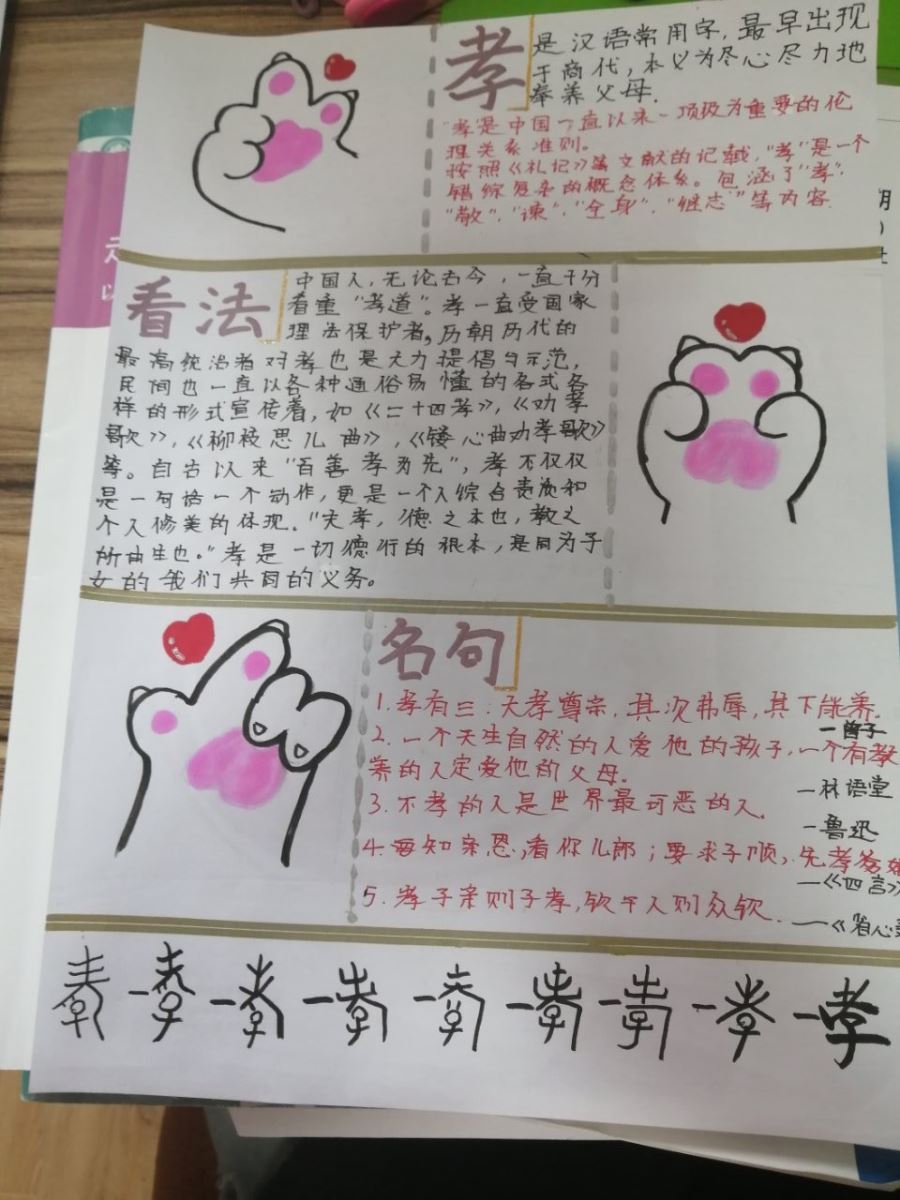 孝
是汉语常用字,最早出现
于商代,本义为尽心尽力地
奉养父母.
"孝"是中国一直以来一项极为重要的伦
理关系准则。
按照《礼记》等文献的记载,"孝"是一个
错综复杂的概念体系。包涵了"孝",
"敬","谏","全身","继志"等内容.
看法
中国人,无论古今,一直十分
看重"孝道"。孝一直受国家
理法保护者,历朝历代的
最高统治者对孝也是大力提倡与示范,
民间也一直以各种通俗易懂的各式各
样的形式宣传着,如《二十四孝》,《劝孝
歌》,《柳枝思儿曲》,《镂心曲劝孝歌》
等。自古以来"百善孝为先",孝不仅仅
是一句话一个动作,更是一个人综合素质和
个人修美的体现."夫孝,德之本也,教之
所由生也。"孝是一切德行的根本,是同为子
女的我们共同的义务。
名句
1.孝有三:大孝尊宗,其次弗辱,其下能养.
—曾子
2.一个天生自然的人爱他的孩子,一个有教
养的人定爱他的父母.
—林语堂
3.不孝的人是世界最可恶的人.
—鲁迅
4.要知亲恩,看你儿郎;要求子顺,先孝爹娘
—《四言》
5.孝子亲则子孝,钦于人则众钦.
—《省心
孝—孝—孝—孝—孝—孝—孝—孝—孝